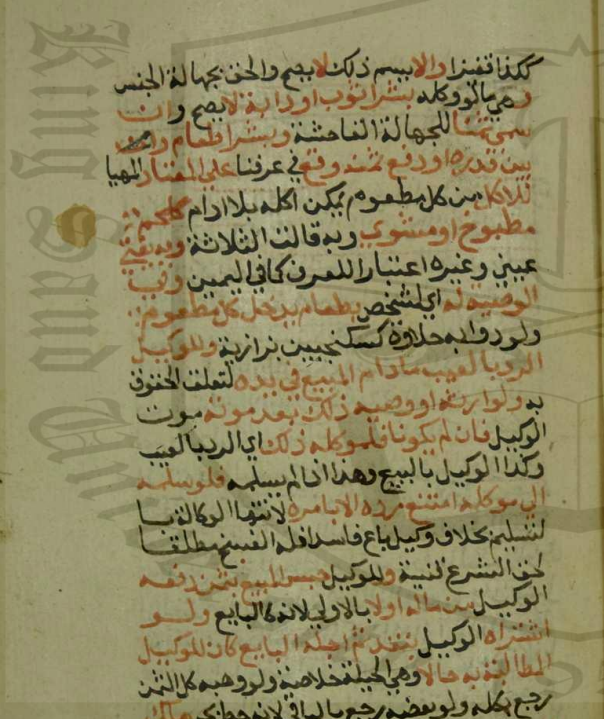 كذا قفيزا والا يسم ذلك لا يصح والحق بجهالة الجنس
وهي ما لو وكله بشراء ثوب او دابة لا يصح وان
سمى ثمنا للجهالة الفاحشة وبشرا طعام وان
بين قدره او دفع ثمنه وقع في عرفنا على المعتاد المهيا
للاكل من كل مطعوم يمكن اكله بلا ادام كلحم
مطبوخ او مشوي وبه قالت الثلاثة وبه يفتى
عيني وغيره اعتبارا للعرف كما في اليمين وفي
الوصية له اي لشخص بطعام يدخل كل مطعوم
ولو دوا به حلاوة كسكنجبين بزازية وللوكيل
الرد بالعيب ما دام المبيع في يده لتعلق الحقوق
به ولوارثه او وصيه ذلك بعد موته موت
الوكيل فان لم يكونا فلموكله ذلك اي الرد بالعيب
وكذا الوكيل بالبيع وهذا اذا لم يسلمه فلو سلمه
الى موكله امتنع رده الا بامره لانتها الوكالة با
لتسليم بخلاف وكيل باع فاسدا فله الفسخ مطلقا
لحق الشرع قنية وللوكيل حبس المبيع بثمن دفعه
الوكيل من ماله اولا بالاولى لانه كالبايع ولو
اشتراه الوكيل بنقد ثم اجله البايع كان للوكيل
المطالبة به حالا وهي الحيلة خلاصة ولو وهبه كل الثمن
رجع بكله ولو بعضه رجع بالباقي لانه حط بحر